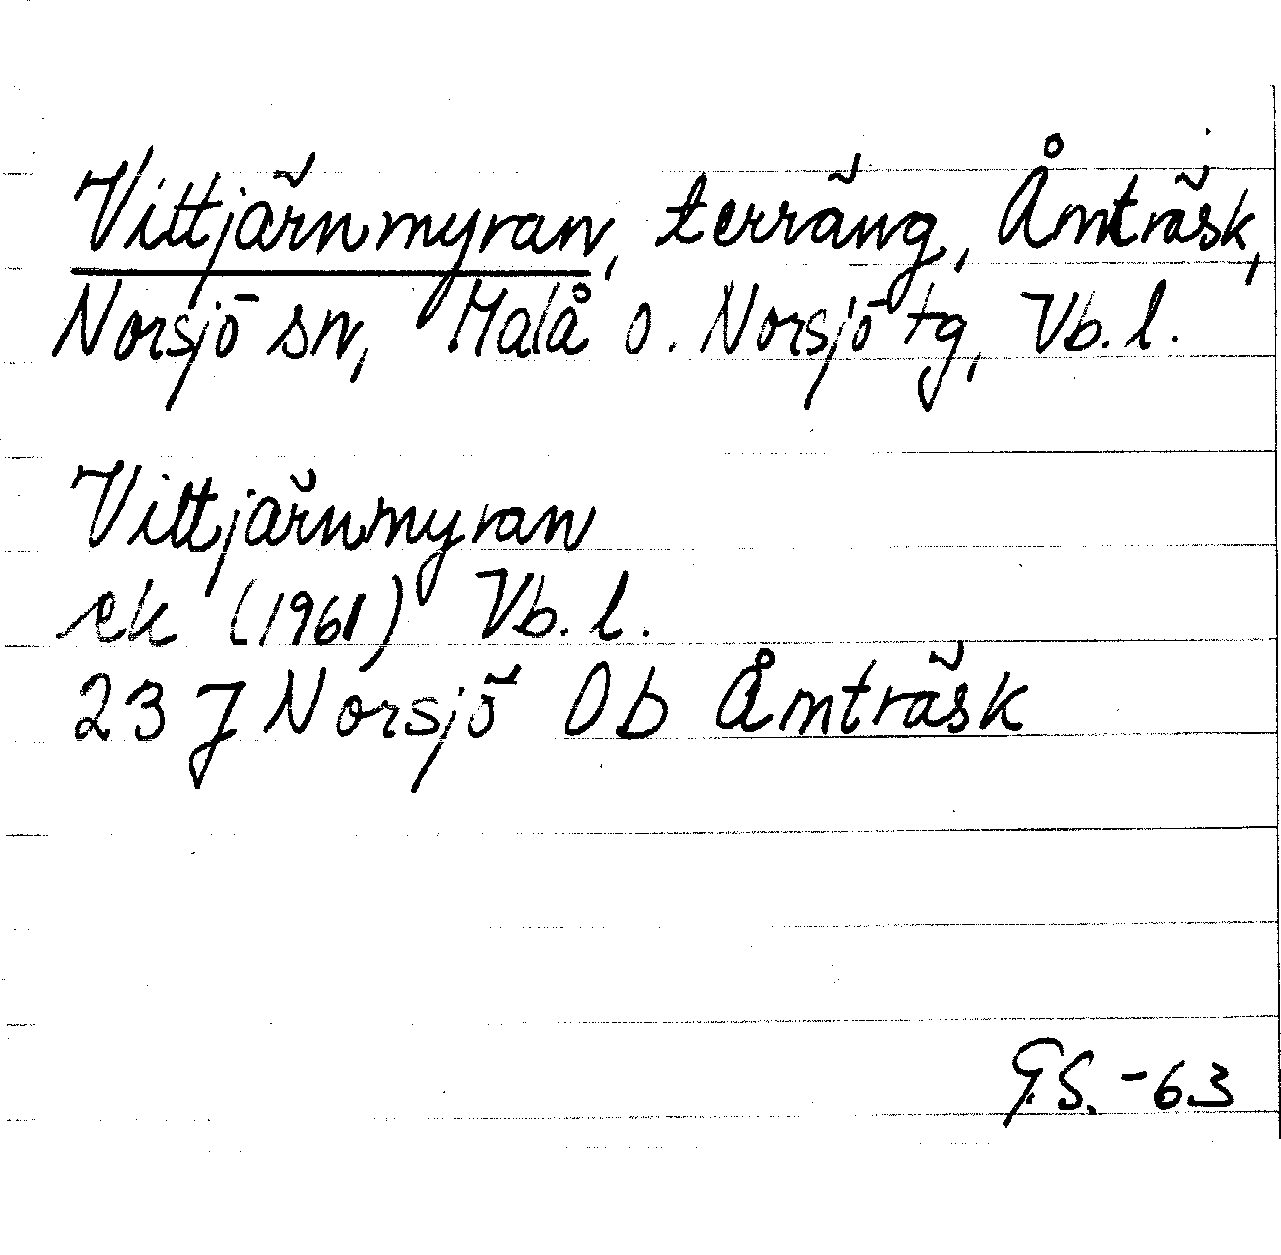 Vittjärnmyran, terräng, Åmträsk,
Norsjö sn, Malå o. Norsjö tg, Vb. l.
Vittjärnmyran
ek (1961) Vb. l.
23 J Norsjö 0b Åmträsk
G.S. -63